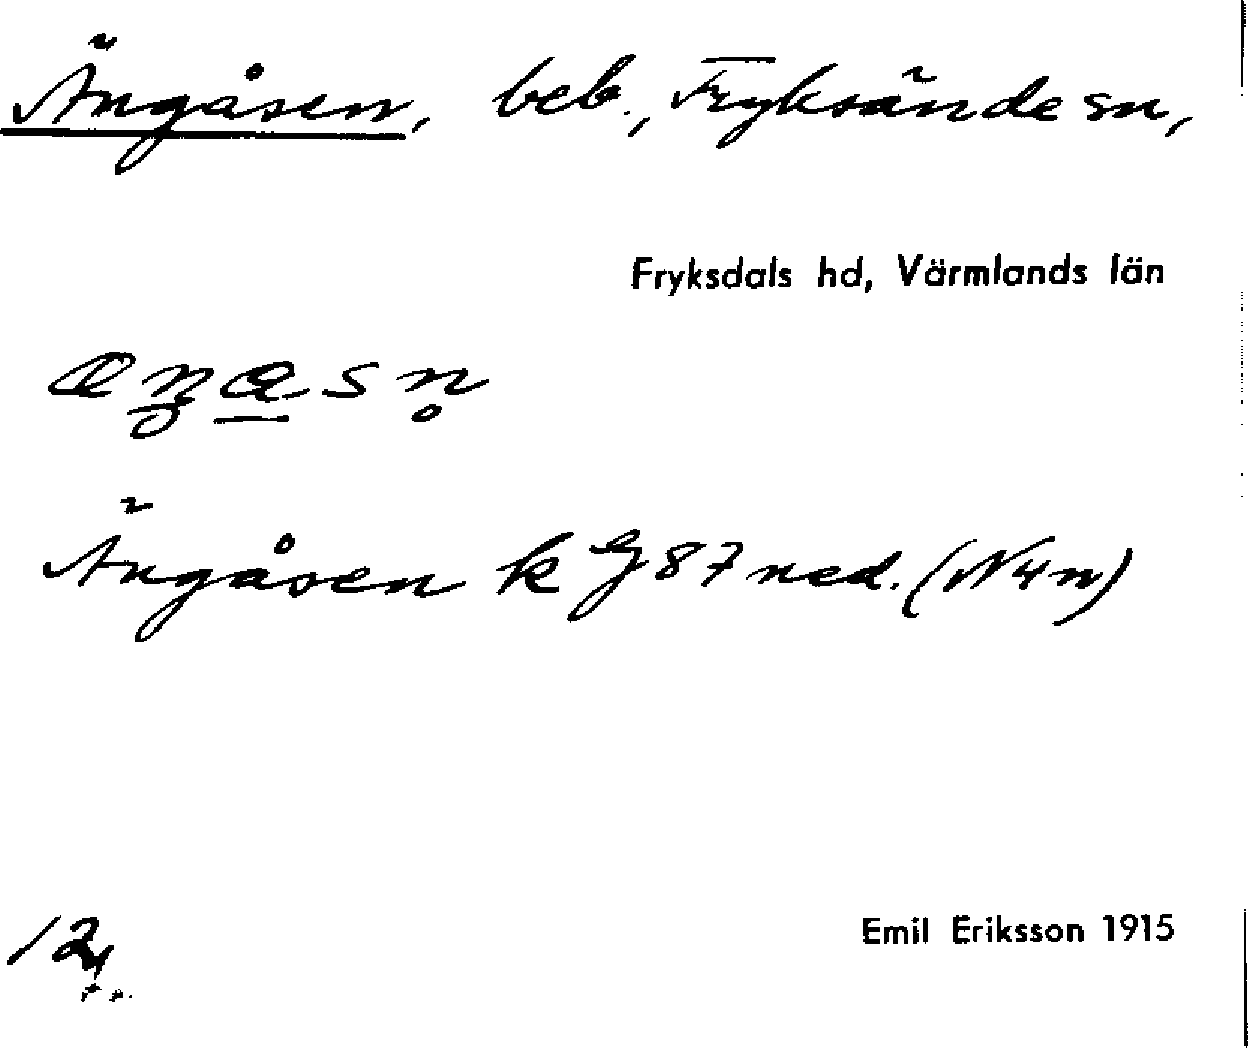 Ängåsen, beb., Fryksände sn,
Fryksdals hd, Värmlands län
Ängåsen k G 87 ned. (N4n)
Emil Eriksson 1915